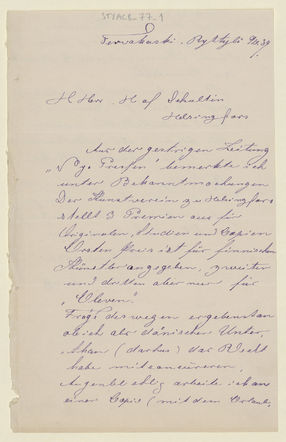 STYACB_77_1
Terwakoski. Ryttylä
H Herr. H af Schultén
Helsingfors
Aus der gestrigen Zeitung
„Nya Pressen" bemerkte ich
unter Bekanntmachungen
Der Kunstverein zu Helsingfors
stellt 3 Premien aus für
Originalen, Studien und Copien
Ersten Preis ist für finnischen
Künstler angegeben, zweiter
und dritten aber nur für
„Eleven".
Frage deswegen ergebenst an
ob ich als dänischer Unter-
than (darhus) das Recht
habe mitconcurriren,
Augenblicklig arbeite ich an
einer Copie (mit dem Erlaub,